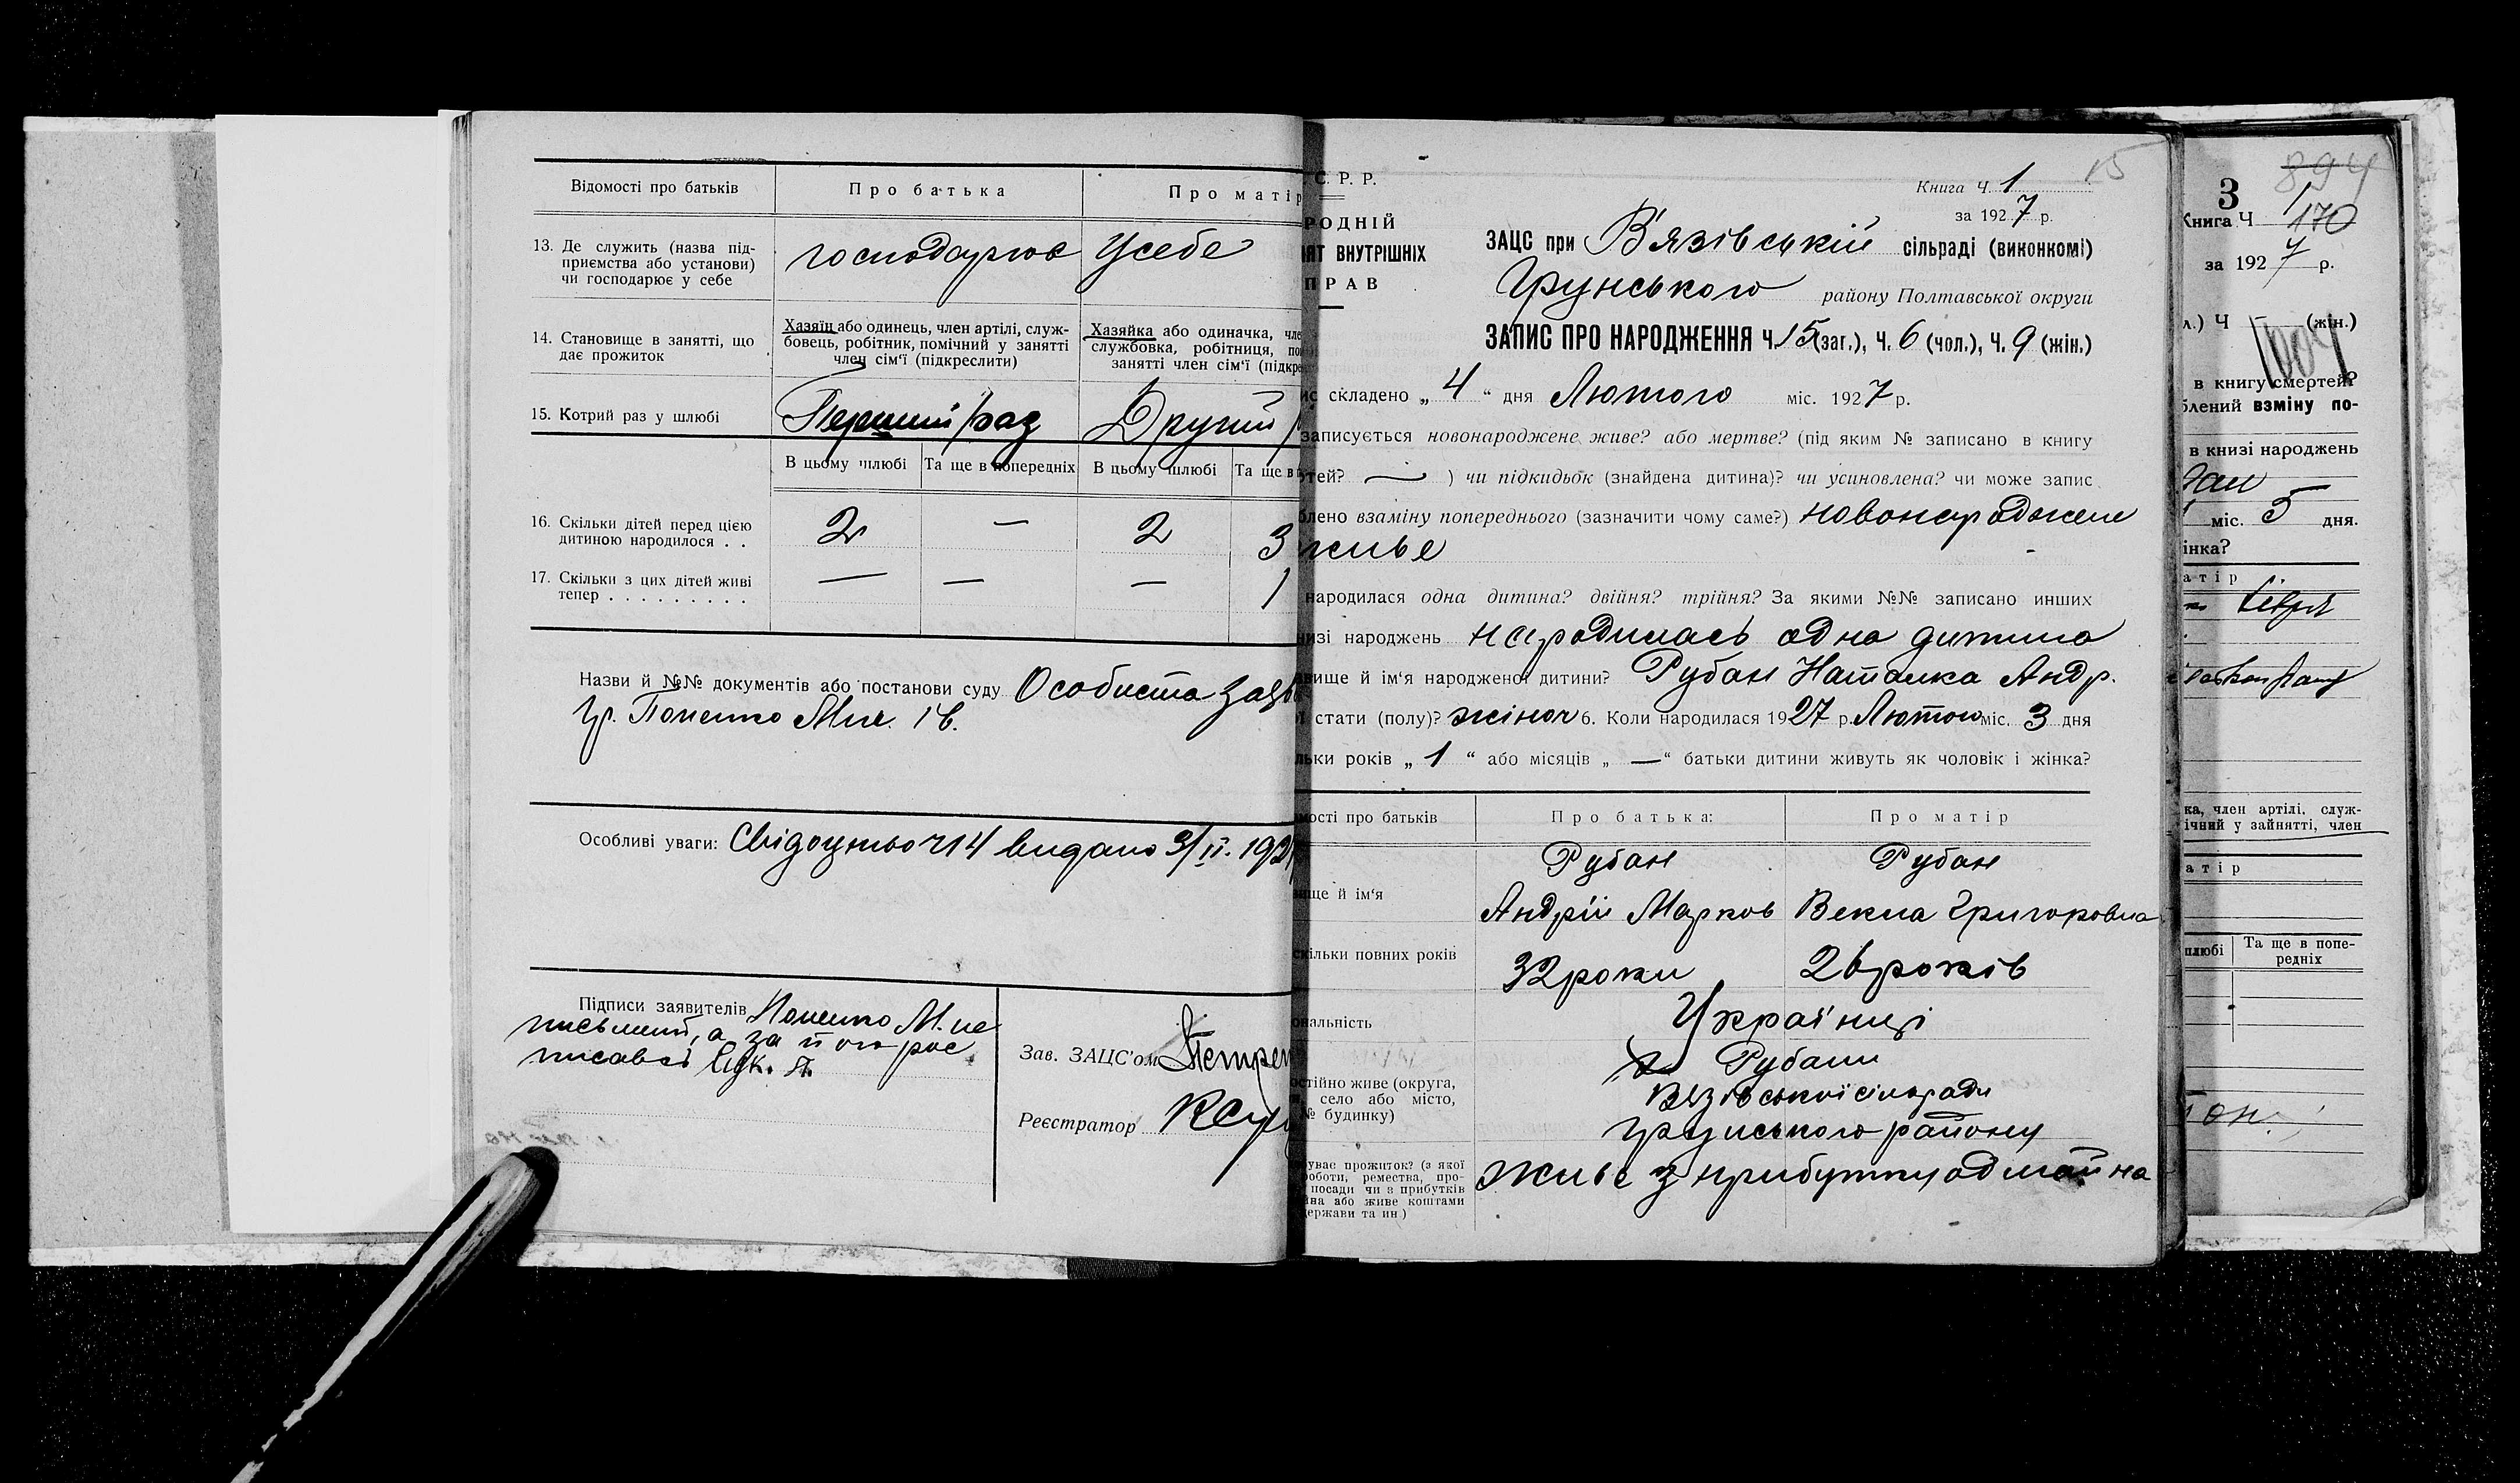 Відомості про батьків
Про батька
Про матір
13. Де служить (назва під-
приємства або установи)
чи господарює у себе
господарює
Усебе
14. Становище в занятті, що
дає прожиток
Хазяїн або одинець, член артілі, служ-
бовець, робітник, помічний у занятті
член сім'ї (підкреслити)
Хазяйка або одиначка, чле
службовка, робітниця, по
занятті член сім'ї (підкре
15. Котрий раз у шлюбі
Перший раз
Другий
В цьому шлюбі
Та ще в попередніх
В цьому шлюбі
Та ще в
16. Скільки дітей перед цією
дитиною народилося . .
2 — 2 3
17. Скільки з цих дітей живі
тепер . . . . . . . . .
— — — 1
Назви й №№ документів або постанови суду Особиста заяв
гр. Попенко Мих. Ів.
Особливі уваги: Свідоцтво ч 14 видано 3/II. 192
Підписи заявителів Попенко М. не
письмений, а за його рос
писавсь
Зав. ЗАЦС'ом Петрен
Реєстратор
С. Р. Р.
РОДНІЙ
ЯТ ВНУТРІШНІХ
ПРАВ
15
Книга Ч. 1
за 1927 р.
ЗАЦС при В'язівській сільраді (виконкомі)
Грунського району Полтавської округи
ЗАПИС ПРО НАРОДЖЕННЯ Ч. 15 (заг.), Ч. 6 (чол.), Ч. 9 (жін.)
ис складено „ 4 “ дня Лютого міс. 1927 р.
записується новонароджене живе? або мертве? (під яким № записано в книгу
ртей? — ) чи підкидьок (знайдена дитина)? чи усиновлена? чи може запис
блено взаміну попереднього (зазначити чому саме?) новонароджене
живе
народилася одна дитина? двійня? трійня? За якими №№ записано инших
изі народжень народилась одна дитина
вище й ім'я народженої дитини? Рубан Наталка Андр.
ї стати (полу)? жіноч 6. Коли народилася 1927 р. Лютого міс. 3 дня
льки років „ 1 “ або місяців „ — “ батьки дитини живуть як чоловік і жінка?
мості про батьків
Про батька:
Про матір
вище й ім'я
Рубан
Андрій Марков
Рубан
Векла Григоровна
кільки повних років
32 роки
26 років
ональність
Українці
остійно живе (округа,
н, село або місто,
№ будинку)
х. Рубани
Вязівської сільради
Грунського району
уває прожиток? (з якої
роботи, ремества, про-
посади чи з прибутків
йна або живе коштами
держави та ин)
живе з прибутку од майна
3
894
Книга Ч 1
170
за 1927 р.
л.) Ч — (жін.)
в книгу смертей?
блений взміну по-
в книзі народжень
міс. 5 дня.
інка?
атір
ка, член артілі, служ-
ічний у зайнятті, член
атір
шлюбі
Та ще в попе-
редніх